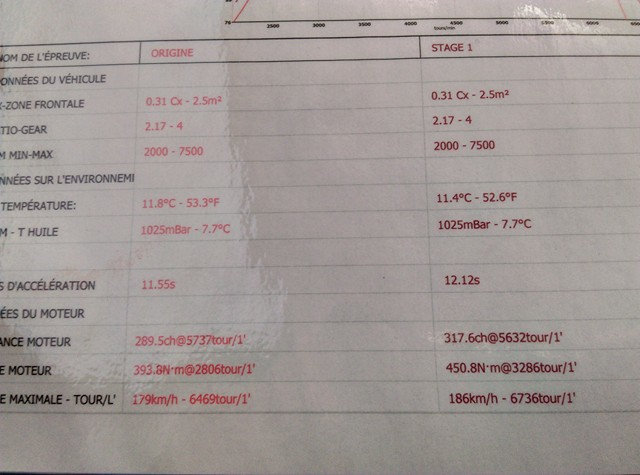 76
2500 3000 3500 4000 4500 5000 5500 6000
tours/min
NOM DE L'ÉPREUVE: ORIGINE STAGE 1
ONNÉES DU VÉHICULE
X-ZONE FRONTALE 0.31 Cx - 2.5m² 0.31 Cx - 2.5m²
TIO-GEAR 2.17 - 4 2.17 - 4
M MIN-MAX 2000 - 7500 2000 - 7500
NNÉES SUR L'ENVIRONNEMI
TEMPÉRATURE: 11.8°C - 53.3°F 11.4°C - 52.6°F
M - T HUILE 1025mBar - 7.7°C 1025mBar - 7.7°C
S D'ACCÉLÉRATION 11.55s 12.12s
ÉES DU MOTEUR
ANCE MOTEUR 289.5ch@5737tour/1' 317.6ch@5632tour/1'
E MOTEUR 393.8N·m@2806tour/1' 450.8N·m@3286tour/1'
E MAXIMALE - TOUR/L' 179km/h - 6469tour/1' 186km/h - 6736tour/1'